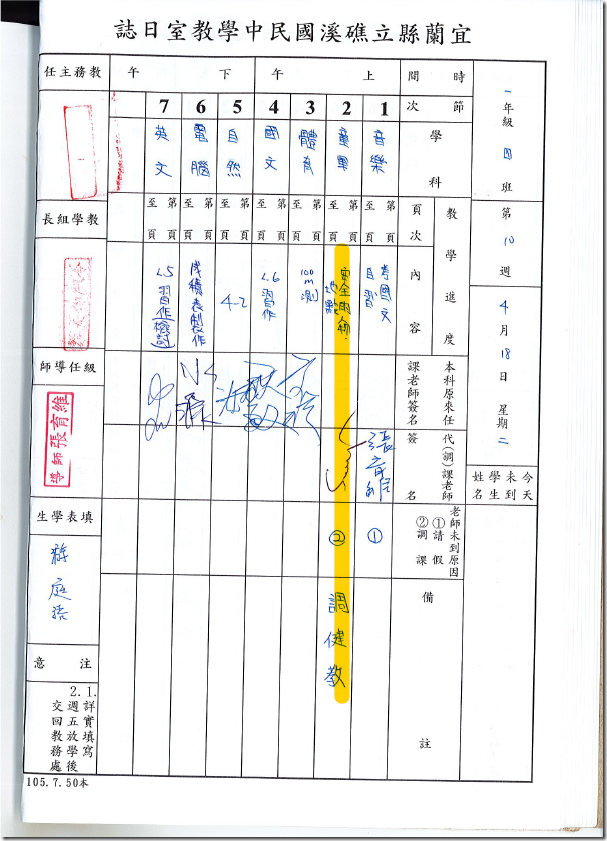 宜蘭縣立礁溪國民中學教室日誌
一年級 四 班
第 10 週
4 月 18 日 星期 二
今天未到學生姓名
時間
上午
下午
教務主任
節次
1
2
3
4
5
6
7
學科
音樂
童軍
體育
國文
自然
電腦
英文
教學進度
頁次
第 頁至 頁
第 頁至 頁
第 頁至 頁
第 頁至 頁
第 頁至 頁
第 頁至 頁
第 頁至 頁
教學組長
內容
考國文
自習
100m測
L6習作
4-2
成績表製作
L5習作檢討
本科原來任課老師簽名
級任導師
導師張育維
代(調)課老師簽名
張育維
老師未到原因
①請假
②調課
①
②
填表學生
庭
備註
調健教
注意
1.詳實填寫
2.週五放學後交回教務處
105.7.50本